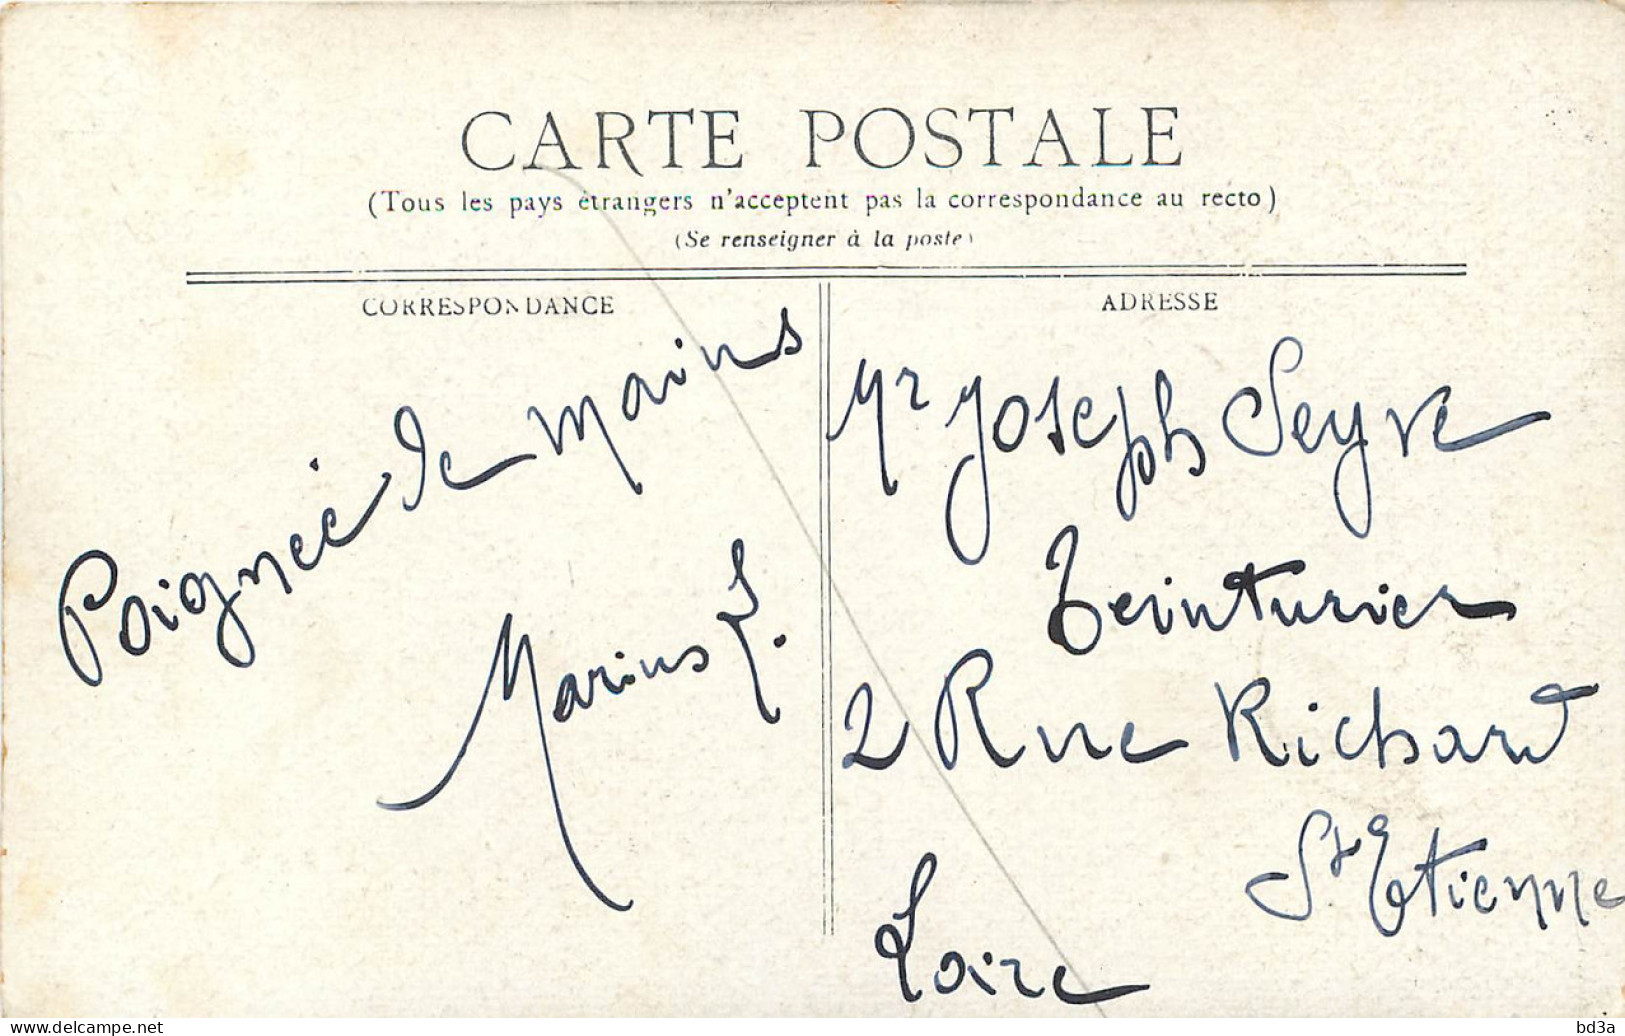 CARTE POSTALE
(Tous les pays étrangers n'acceptent pas la correspondance au recto)
(Se renseigner à la poste)
CORRESPONDANCE
Poignée de mains
Marius L.
ADRESSE
Mr Joseph Seyve
Teinturier
2 Rue Richard
St Etienne
Loire
www.delcampe.net
bd3a